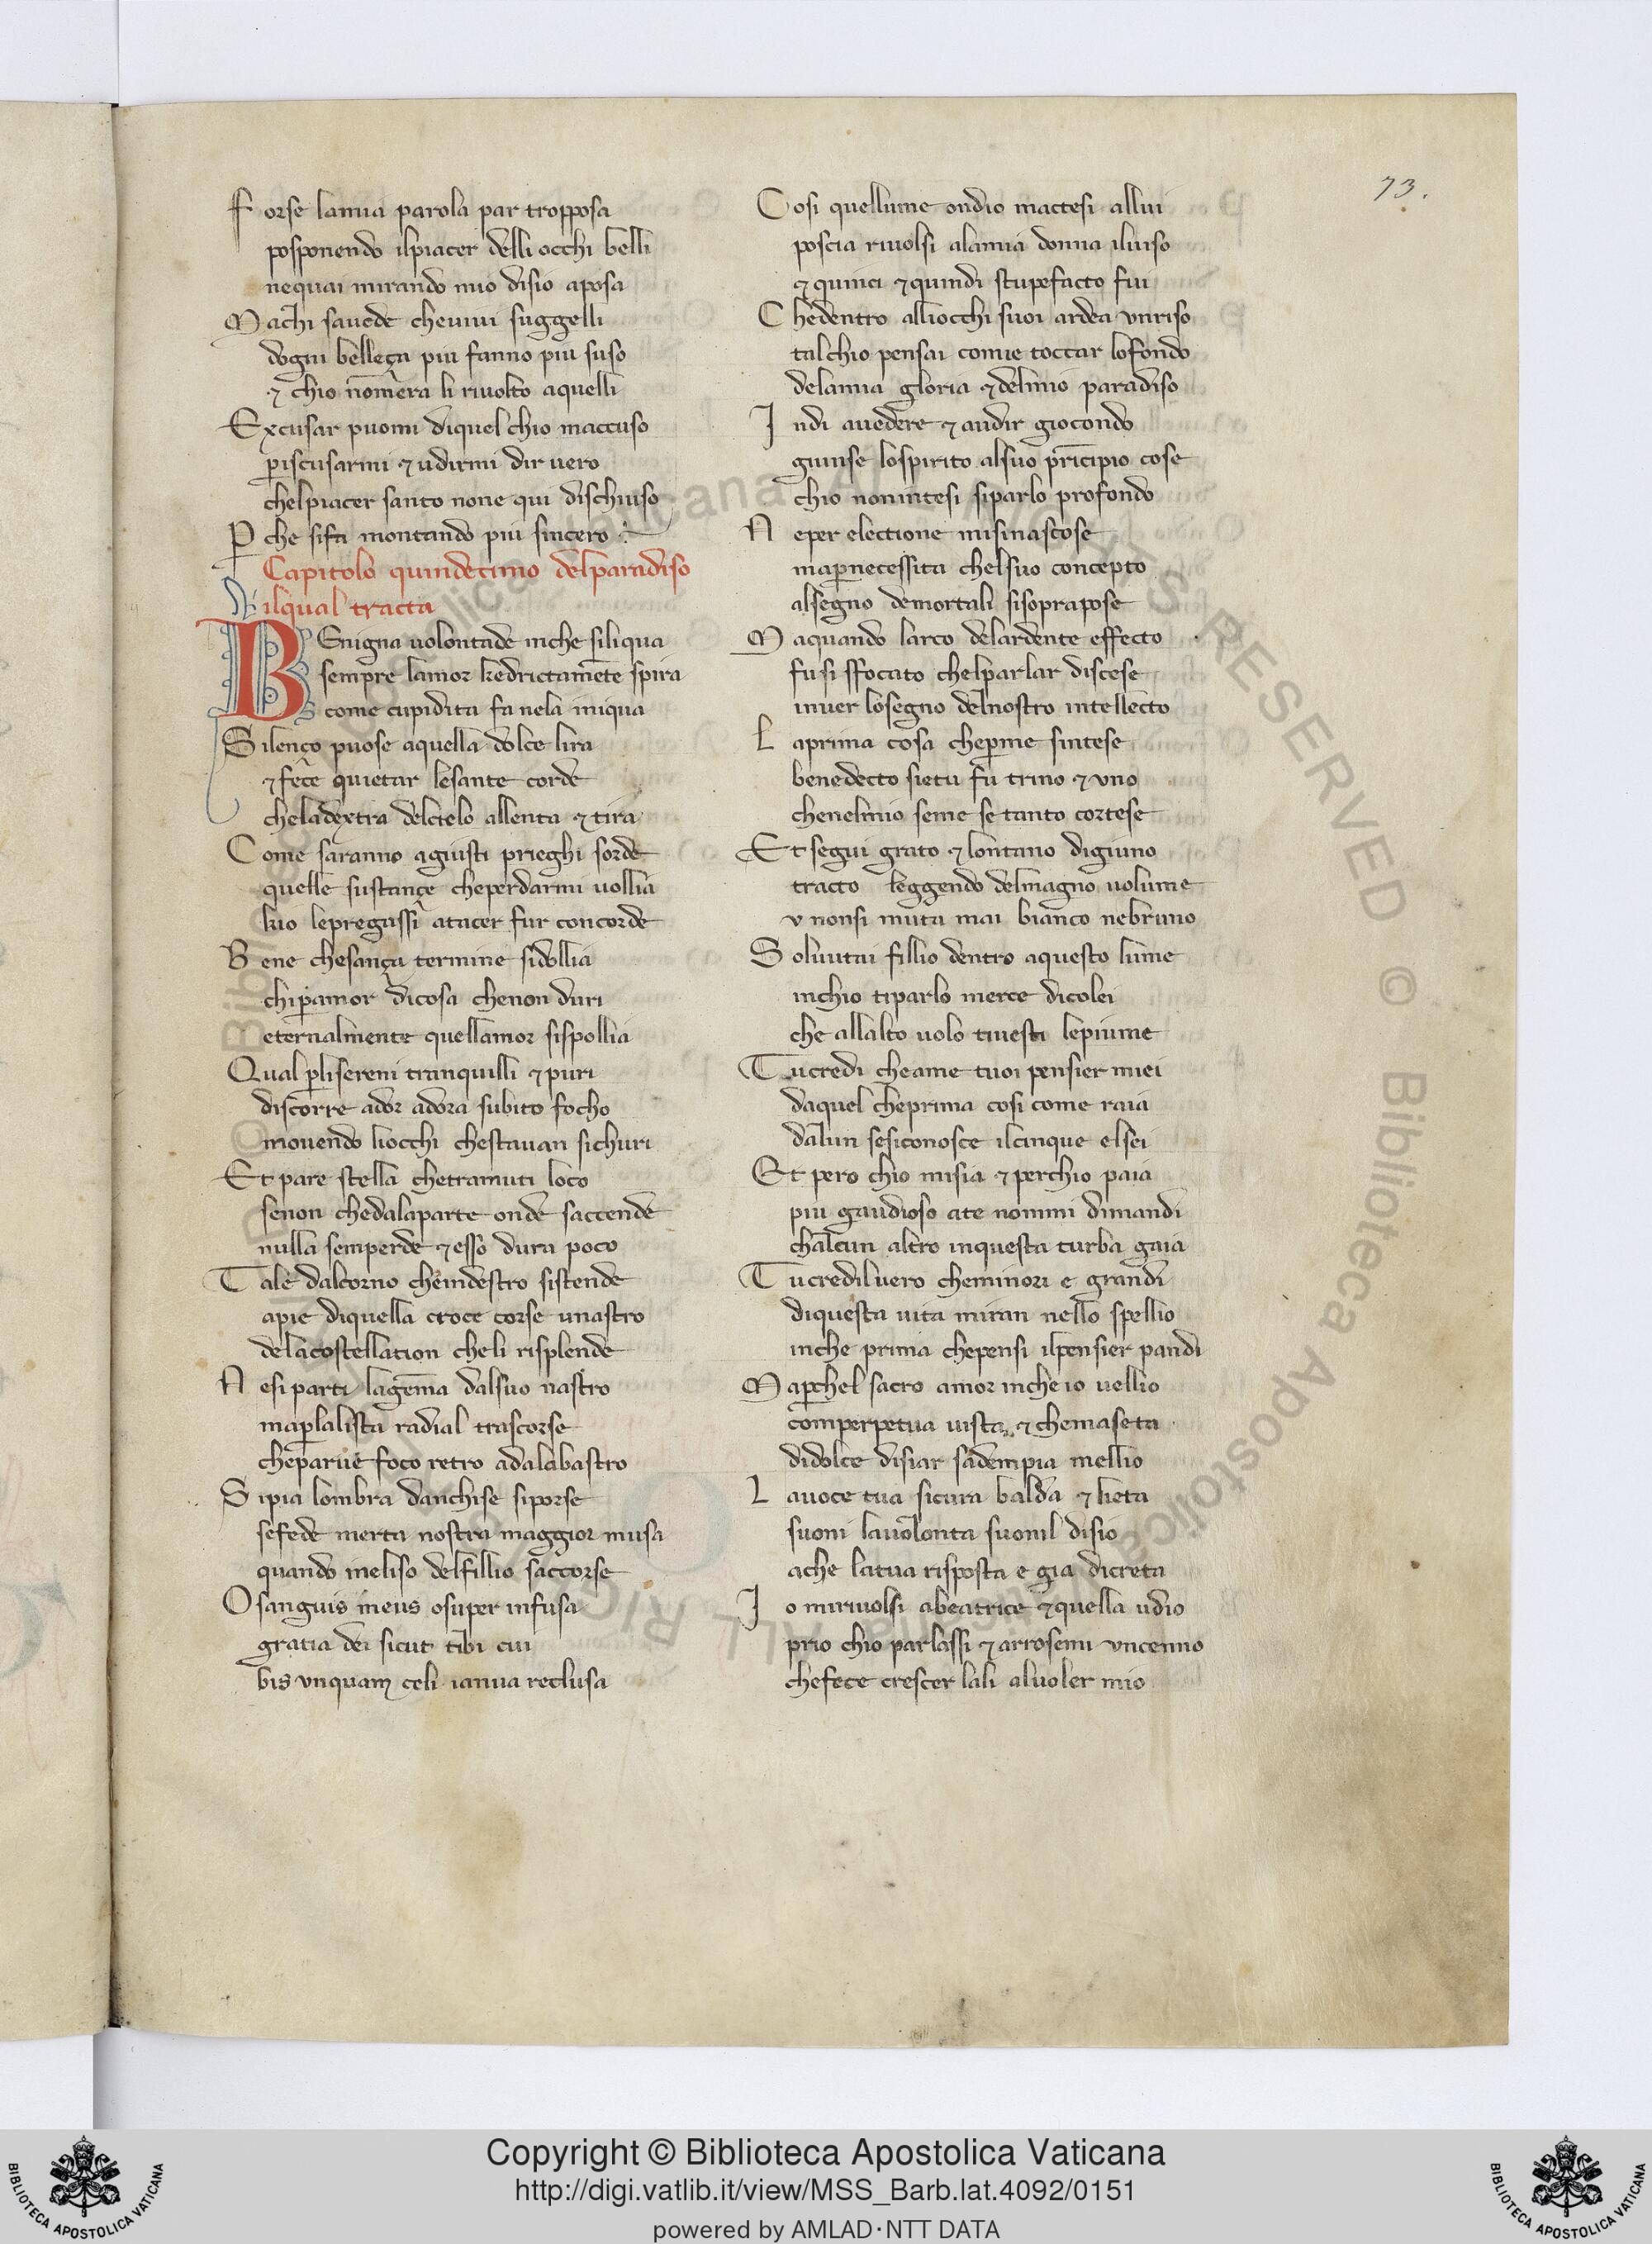 73.
Forse lamia parola par tropposa
posponendo ilpiacer delli occhi belli
nequai mirando mio disio aposa
Machi savede cheuiui suggelli
dogni belleça piu fanno piu suso
⁊ chio nōmera li riuolto aquelli
Excusar puomi diquel chio maccuso
ꝑiscusarmi ⁊ udirmi dir uero
chelpiacer santo none qui dischiuso
Ꝑche sifa montando piu sincero
Capitolo quindecimo delparadiso
ilqual tracta
BEnigna uolontade inche siliqua
sempre lamor kedrictamēte spira
come cupidita fa nela iniqua
Silenço puose aquella dolce lira
⁊ fece quietar lesante corde
cheladextra delcielo allenta ⁊ tira
Come saranno agiusti prieghi sorde
quelle sustançe cheperdarmi uollia
kio lepregassi atacer fur concorde
Bene chesança termine sidollia
chiꝑamor dicosa chenon duri
eternalmente quellamor sispollia
Qual ꝑlisereni tranquilli ⁊ puri
discorre ador adora subito focho
mouendo liocchi chestauan sichuri
Et pare stella chetramuti loco
senon chedalaparte onde saccende
nulla semperde ⁊ esso dura poco
Tale dalcorno cheindestro sistende
apie diquella croce corse unastro
delacostellation cheli risplende
Nesi parti lagēma dalsuo nastro
maꝑlalista radial trascorse
cheparue foco retro adalabastro
Sipia lombra danchise siporse
sefede merta nostra maggior musa
quando ineliso delfillio saccorse
Osanguis meus osuper infusa
gratia dei sicut tibi cui
bis vnquam celi ianua reclusa
Cosi quellume ondio mactesi allui
poscia riuolsi alamia donna iluiso
⁊ quinci ⁊ quindi stupefacto fui
Chedentro alliocchi suoi ardea vnriso
talchio pensai comie toccar lofondo
delamia gloria ⁊ delmio paradiso
Indi auedere ⁊ audir giocondo
giunse lospirito alsuo prīcipio cose
chio nonintesi siparlo profondo
Neper electione misinascose
maꝑnecessita chelsuo concepto
alsegno demortali sisoprapose
Maquando larco delardente effecto
fu si sfocato chelparlar discese
inuer losegno delnostro intellecto
Laprima cosa cheꝑme sintese
benedecto sietu fu trino ⁊ vno
chenelmio seme se tanto cortese
Et segui grato ⁊ lontano digiuno
tracto leggendo delmagno uolume
v nonsi muta mai bianco nebruno
Soluutai fillio dentro aquesto lume
inchio tiparlo merce dicolei
che allalto uolo tiuesti lepiume
Tucredi cheame tuoi pensier miei
daquel cheprima cosi come raia
dalun sesiconosce ilcinque elsei
Et pero chio misia ⁊ perchio paia
piu gaudioso ate nonmi dimandi
chalcun altro inquesta turba gaia
Tucredilvero cheminori e grandi
diquesta uita miran nello spellio
inche prima chepensi ilpensier pandi
Maꝑchel sacro amor inche io vellio
comperpetua uista ⁊ chemaseta
didolce disiar sadempia mellio
Lauoce tua sicura balda ⁊ lieta
suoni lauolonta suonil disio
ache latua risposta e gia dicreta
Io miriuolsi abeatrice ⁊ quella udio
prio chio parlassi ⁊ arrosemi vncenno
chefece crescer lali aluoler mio
Copyright © Biblioteca Apostolica Vaticana
http://digi.vatlib.it/view/MSS_Barb.lat.4092/0151
powered by AMLAD·NTT DATA
BIBLIOTECA APOSTOLICA VATICANA
BIBLIOTECA APOSTOLICA VATICANA